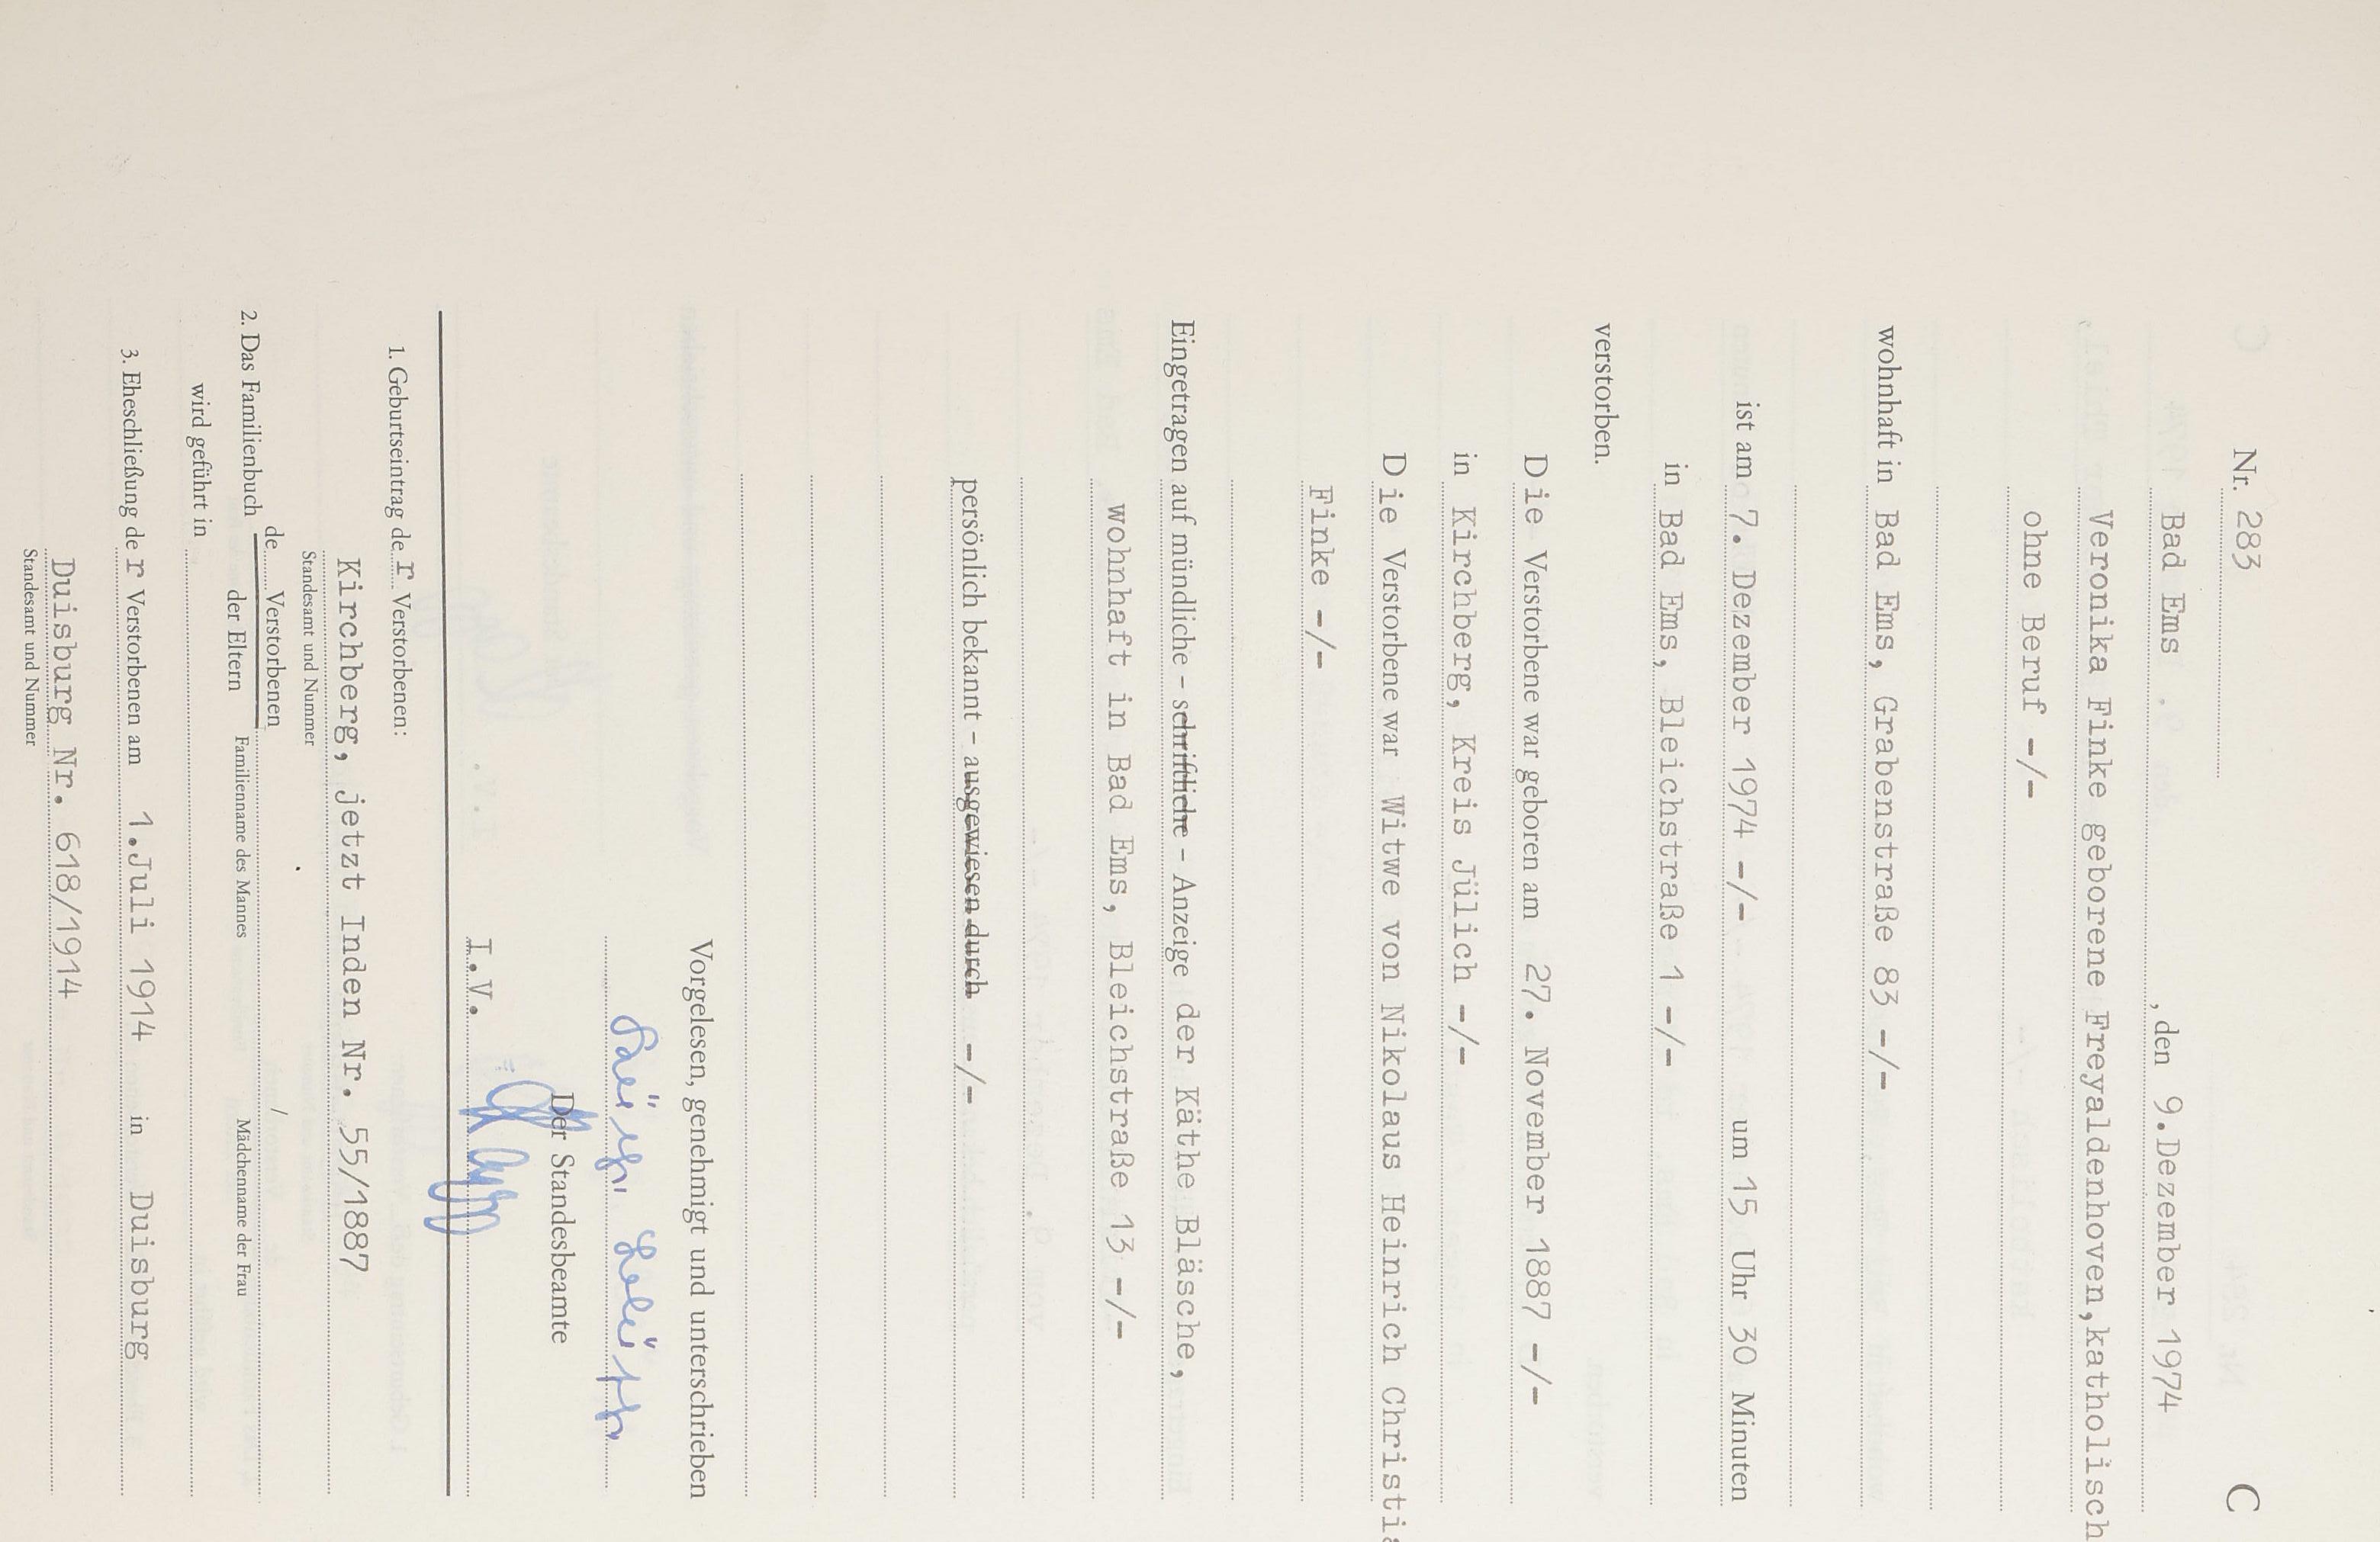 Nr. 283 C
Bad Ems , den 9.Dezember 1974
Veronika Finke geborene Freyaldenhoven,katholisch
ohne Beruf -/-
wohnhaft in Bad Ems, Grabenstraße 83 -/-
ist am 7. Dezember 1974 -/- um 15 Uhr 30 Minuten
in Bad Ems, Bleichstraße 1 -/-
verstorben.
Die Verstorbene war geboren am 27. November 1887 -/-
in Kirchberg, Kreis Jülich -/-
Die Verstorbene war Witwe von Nikolaus Heinrich Christia
Finke -/-
Eingetragen auf mündliche - schriftliche - Anzeige der Käthe Bläsche,
wohnhaft in Bad Ems, Bleichstraße 13 -/-
persönlich bekannt - ausgewiesen durch -/-
Vorgelesen, genehmigt und unterschrieben
Der Standesbeamte
I.V.
1. Geburtseintrag der Verstorbenen:
Kirchberg, jetzt Inden Nr. 55/1887
Standesamt und Nummer
2. Das Familienbuch de Verstorbenen /
der Eltern Familienname des Mannes Mädchenname der Frau
wird geführt in
3. Eheschließung der Verstorbenen am 1.Juli 1914 in Duisburg
Duisburg Nr. 618/1914
Standesamt und Nummer